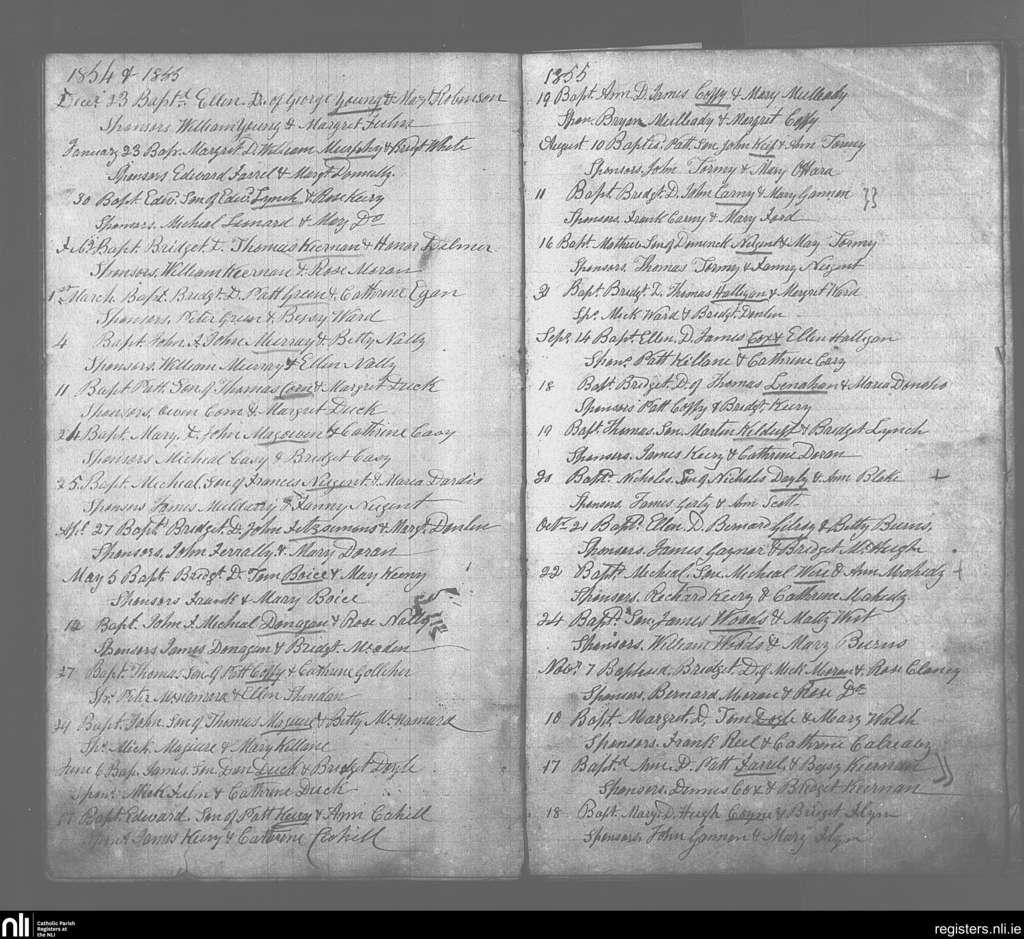 1854 & 1855
Decr 23 Baptd Ellen D. of George Young & Mary Robinson
Sponsors William Young & Margret
January 23 Bap. Margret D. William Murphy & Bridgt White
Sponsors Edward Farrel & Margt Donnely
30 Bapt. Edwd Son of Edwd Lynch & Rose Keery
Sponsors Micheal Lenard & Mary Do
Bapt. Bridget D. Thomas Keernan & Honor Dilmer
Sponsors, William Keernan & Rose Moran
1st March Bapt. Bridgt. D. Patt Green & Cathrine Egan
Sponsors, Peter Green & Bessy Ward
4 Bapt. John S. John Murray & Betty Nally
Sponsors William Murray & Ellen Nally
11 Bapt Patt. Son of Thomas Corn & Margret Duck
Sponsors, Owen Corn & Margret Duck
24 Bapt. Mary. D. John Magowen & Cathrine Cavy
Sponsors Micheal Cavy & Bridget Cavy
25 Bapt. Micheal Son of Francis Neigent & Maria Dardis
Sponsors James Mulderry & Fanny Neigent
Apl. 27 Bapt Bridget D. John Fitzsimons & Margt. Donlin
Sponsors, John & Mary Doran
May 5 Bapt Bridgt. D. Tom Boice & Mary Keeny
Sponsors Frank & Mary Boice
12 Bapt. John S. Micheal Donagan & Rose Nally
Sponsors James Donagan & Bridgt.
27 Bapt. Thomas Son of Patt Coffy & Cathrine Gollcher
Sps. Peter McNamara & Ellen Sheridan
24 Bapt. John Son of Thomas Maguire & Betty McNamard
Sps. Mick Maguire & Mary Killane
June 6 Bap. James. Son Dan Duck & Bridget Doyle
Spon. Mick & Cathrine Duck
17 Bapt Edward. Son of Patt Keery & Ann Cahill
James Keery & Cathrine Cahill
1855
19 Bapt Ann D. James Coffy & Mary Mulleady
Spon. Bryan Mulleady & Margret Coffy
August 10 Baptd. Patt. Son John Keif & Ann Tormy
Sponsors John Tormy & Mary OHara
11 Bapt Bridgt. D. John Carny & Mary Gannon
Sponsors. Frank Carny & Mary Ford
16 Bapt Mathew Son of Dominck Neigent & Mary Tormy
Sponsors Thomas Tormy & Fanny Neigent
31 Bapt. Bridgt. D. Thomas Halligan & Margret Ward
Sps. Mick Ward & Bridgt Donlin
Sept. 14 Bapt. Ellen. D. James Cox & Ellen Halligan
Spons. Patt Killane & Cathrine Cary
18 Bapt Bridget. D. of Thomas Lenahan & Maria Donoho
Sponsors Patt Coffy & Bridgt Keery
19 Bapt Thomas Son. Martin & Bridget Lynch
Sponsors James Keery & Cathrine Doran
30 Baptd Nicholas. Son of Nicholas Dayly & Ann Blake
Sponsors. James Gerty & Ann Scott
Octr. 21 Bapt. Ellen. D. Bernard Gilroy & Betty Burns,
Sponsors. James Gaynor & Bridget McHugh
22 Bapt. Micheal. Son Micheal & Ann
Sponsors, Richard Keery & Cathrine
24 Bapt. Son. James Woods & Matty
Sponsors. William Woods & Mary Burns
Novr. 7 Baptised. Bridget D. of Mick Moran & Rose Clancy
Sponsors. Bernard Moran & Rose Do
10 Bapt. Margret. D. Tom Doyle & Mary Walsh
Sponsors. Frank Reel & Cathrine
17 Baptd Ann. D. Patt Farel & Bessy Keernan
Sponsors. Dennis Cox & Bridget Keernan
18 Bapt. Mary. D. Hugh Coyne & Bridget Flyn
Sponsors. John Gannon & Mary Flyn
nli Catholic Parish
Registers at
the NLI
registers.nli.ie